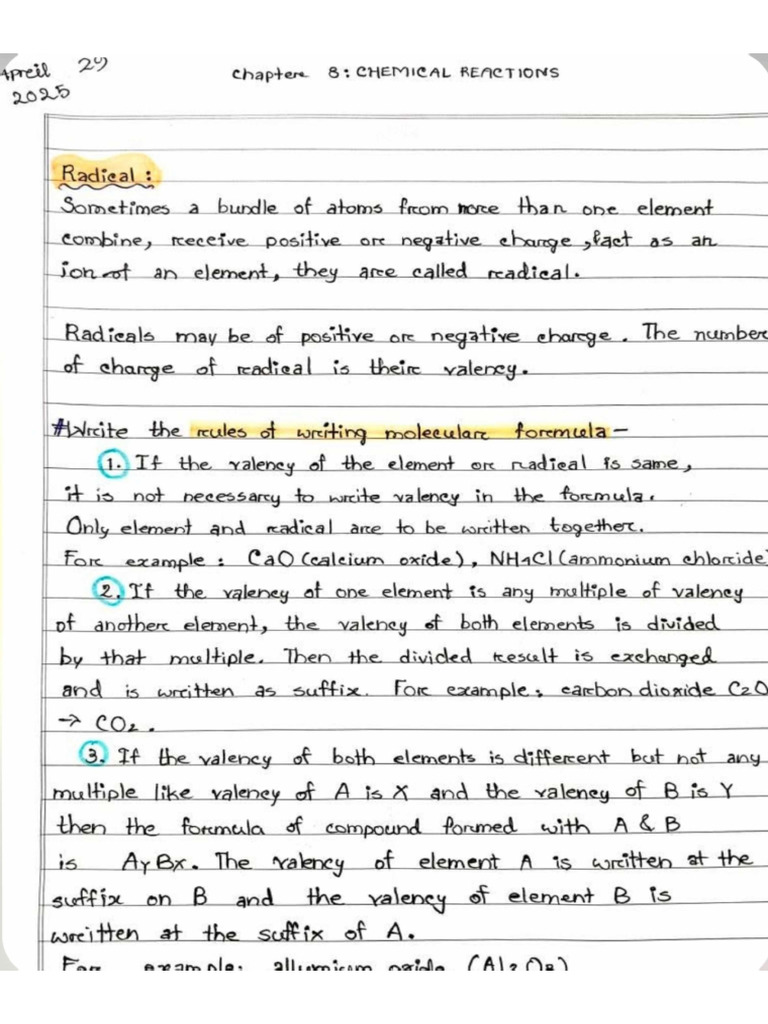 April 29
2025
Chapter 8: CHEMICAL REACTIONS
Radical:
Sometimes a bundle of atoms from more than one element
combine, receive positive or negative charge, & act as an
ion of an element, they are called radical.
Radicals may be of positive or negative charge. The number
of charge of radical is their valency.
#Write the rules of writing molecular formula-
1. If the valency of the element or radical is same,
it is not necessary to write valency in the formula.
Only element and radical are to be written together.
For example: CaO (calcium oxide), NH4Cl (ammonium chloride)
2. If the valency of one element is any multiple of valency
of another element, the valency of both elements is divided
by that multiple. Then the divided result is exchanged
and is written as suffix. For example: carbon dioxide C2O
→ CO2.
3. If the valency of both elements is different but not any
multiple like valency of A is X and the valency of B is Y
then the formula of compound formed with A & B
is AyBx. The valency of element A is written at the
suffix on B and the valency of element B is
written at the suffix of A.
For example: allumium oxide (Al2O3)